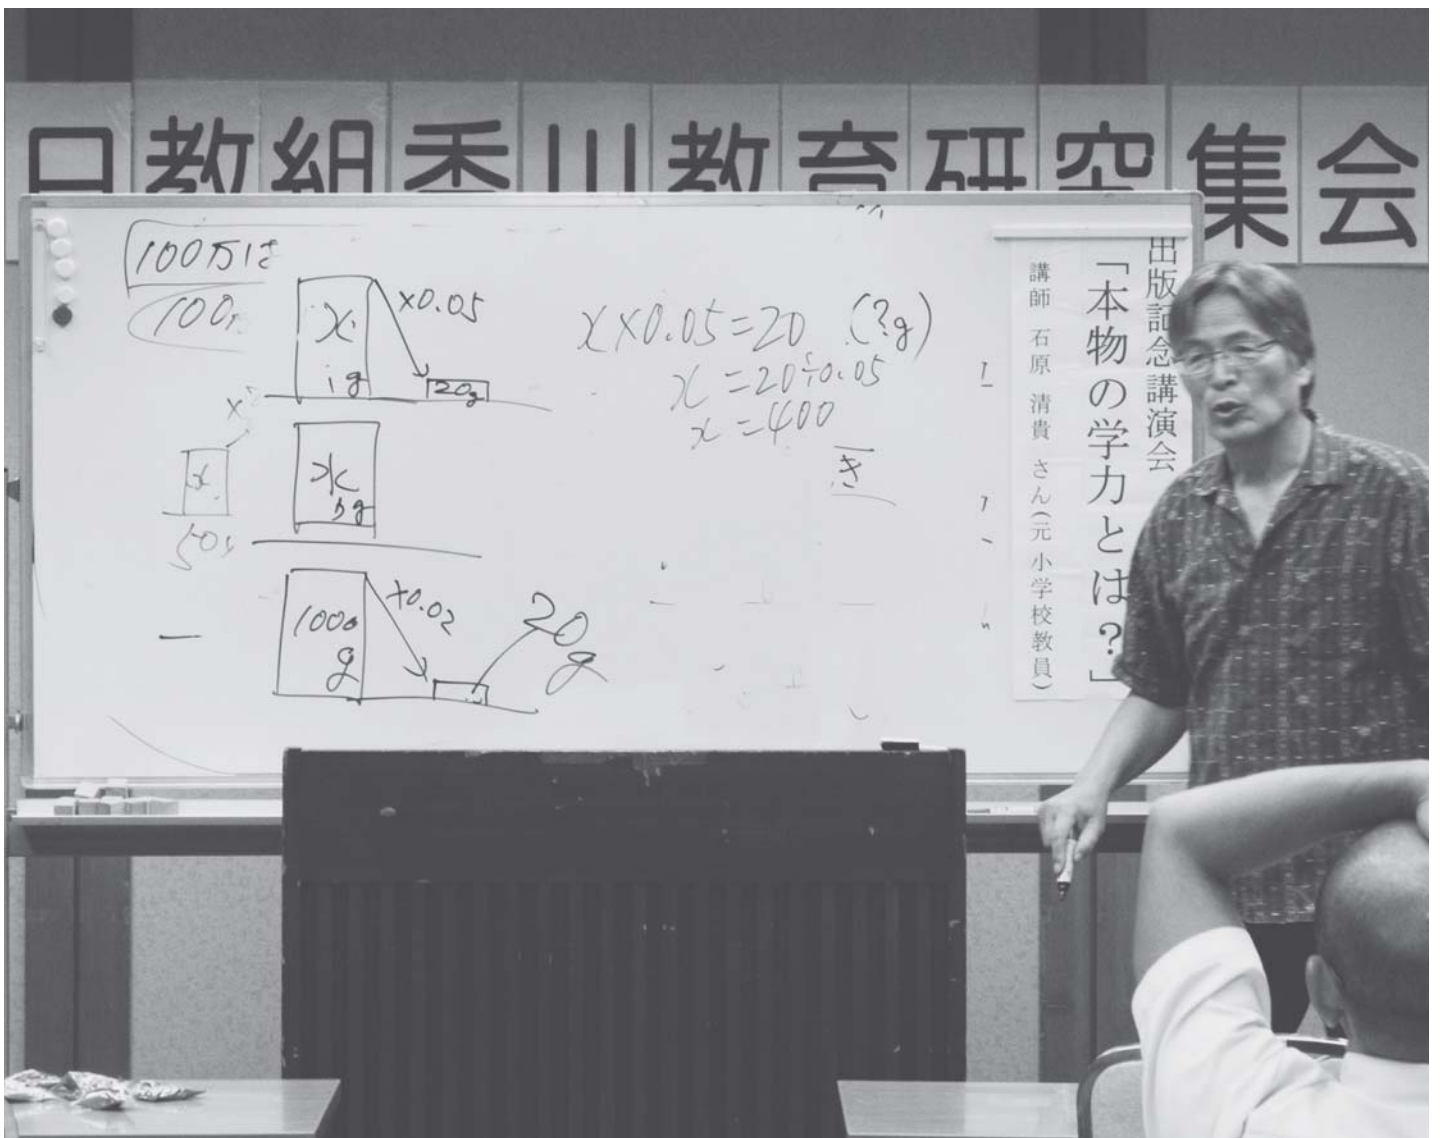 日教組香川教育研究集会
出版記念講演会
「本物の学力とは?」
講師 石原 清貴 さん(元 小学校教員)
100万
100
x
g
×0.05
20g
x×0.05=20 (?g)
x=20÷0.05
x=400
き
x
50
g
1000
g
×0.02
20
g